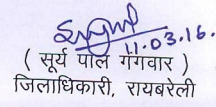 11.03.16.
( सूर्य पाल गंगवार )
जिलाधिकारी, रायबरेली